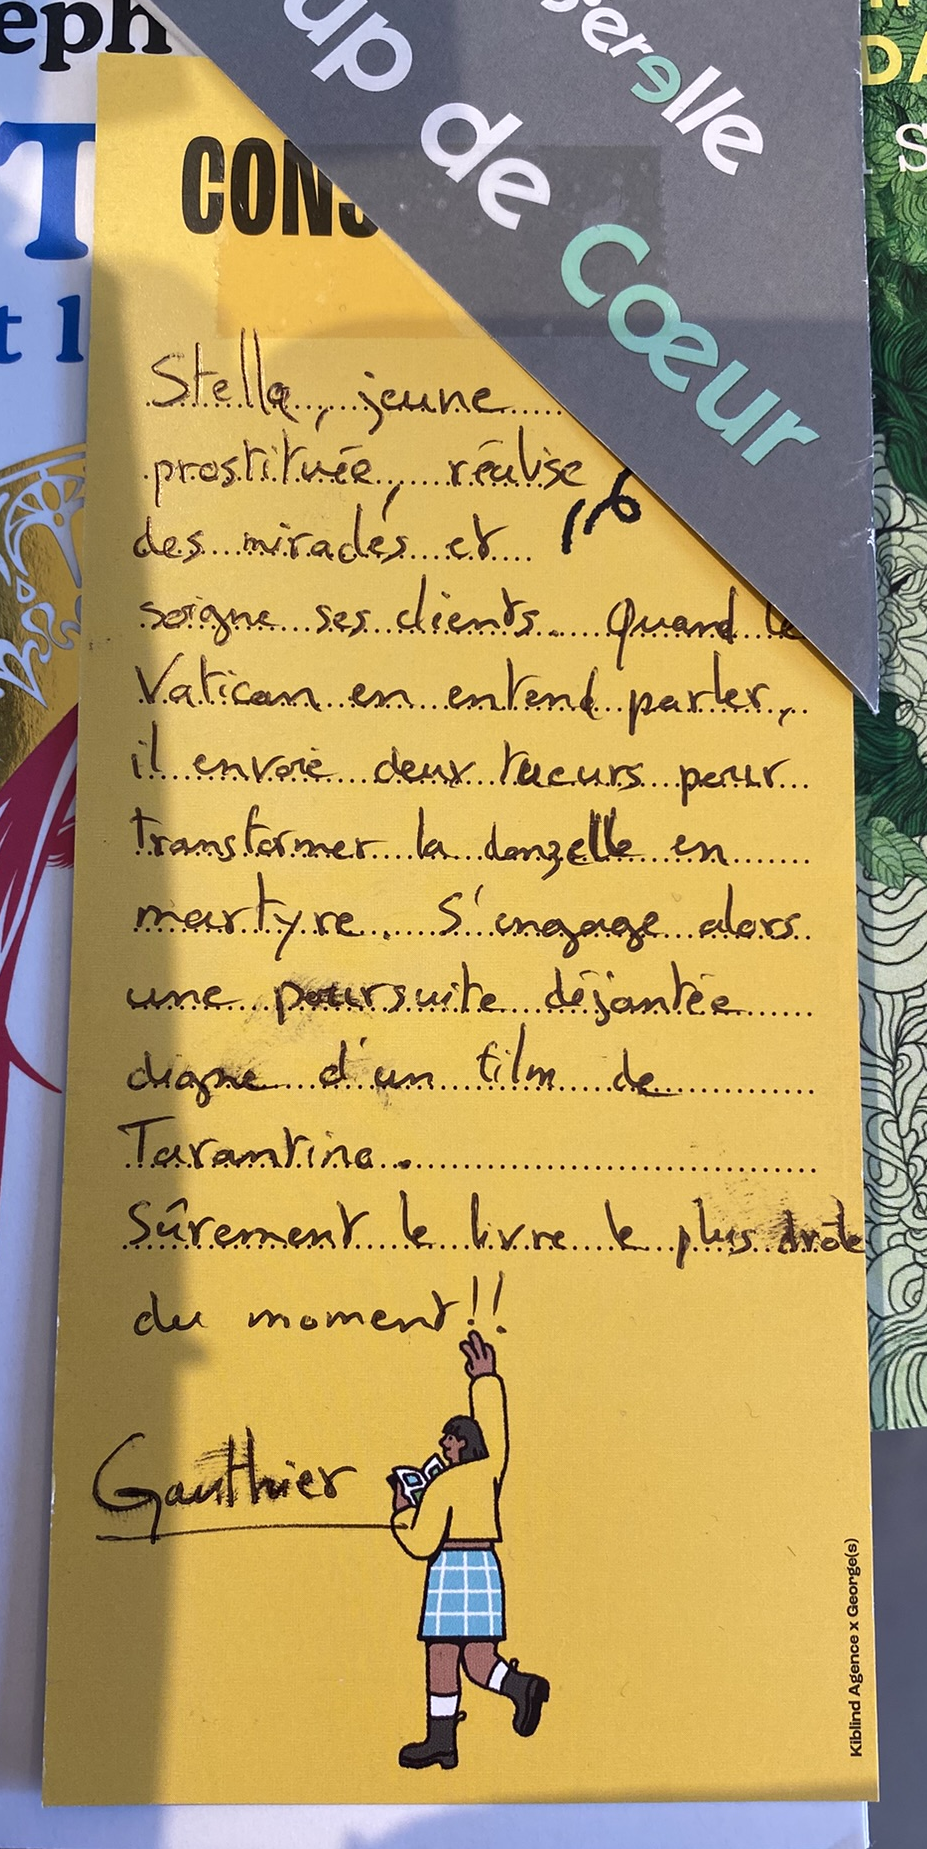 eph
T
t l
erelle
up de
Cœur
DA
S
CONS
Stella, jeune
prostituée, réalise
des miracles et
soigne ses clients. Quand le
Vatican en entend parler,
il envoie deux tueurs pour
transformer la donzelle en
martyre. S'engage alors
une poursuite déjantée
digne d'un film de
Tarantino.
Sûrement le livre le plus drôle
du moment!!
Gauthier
Kiblind Agence x George(s)